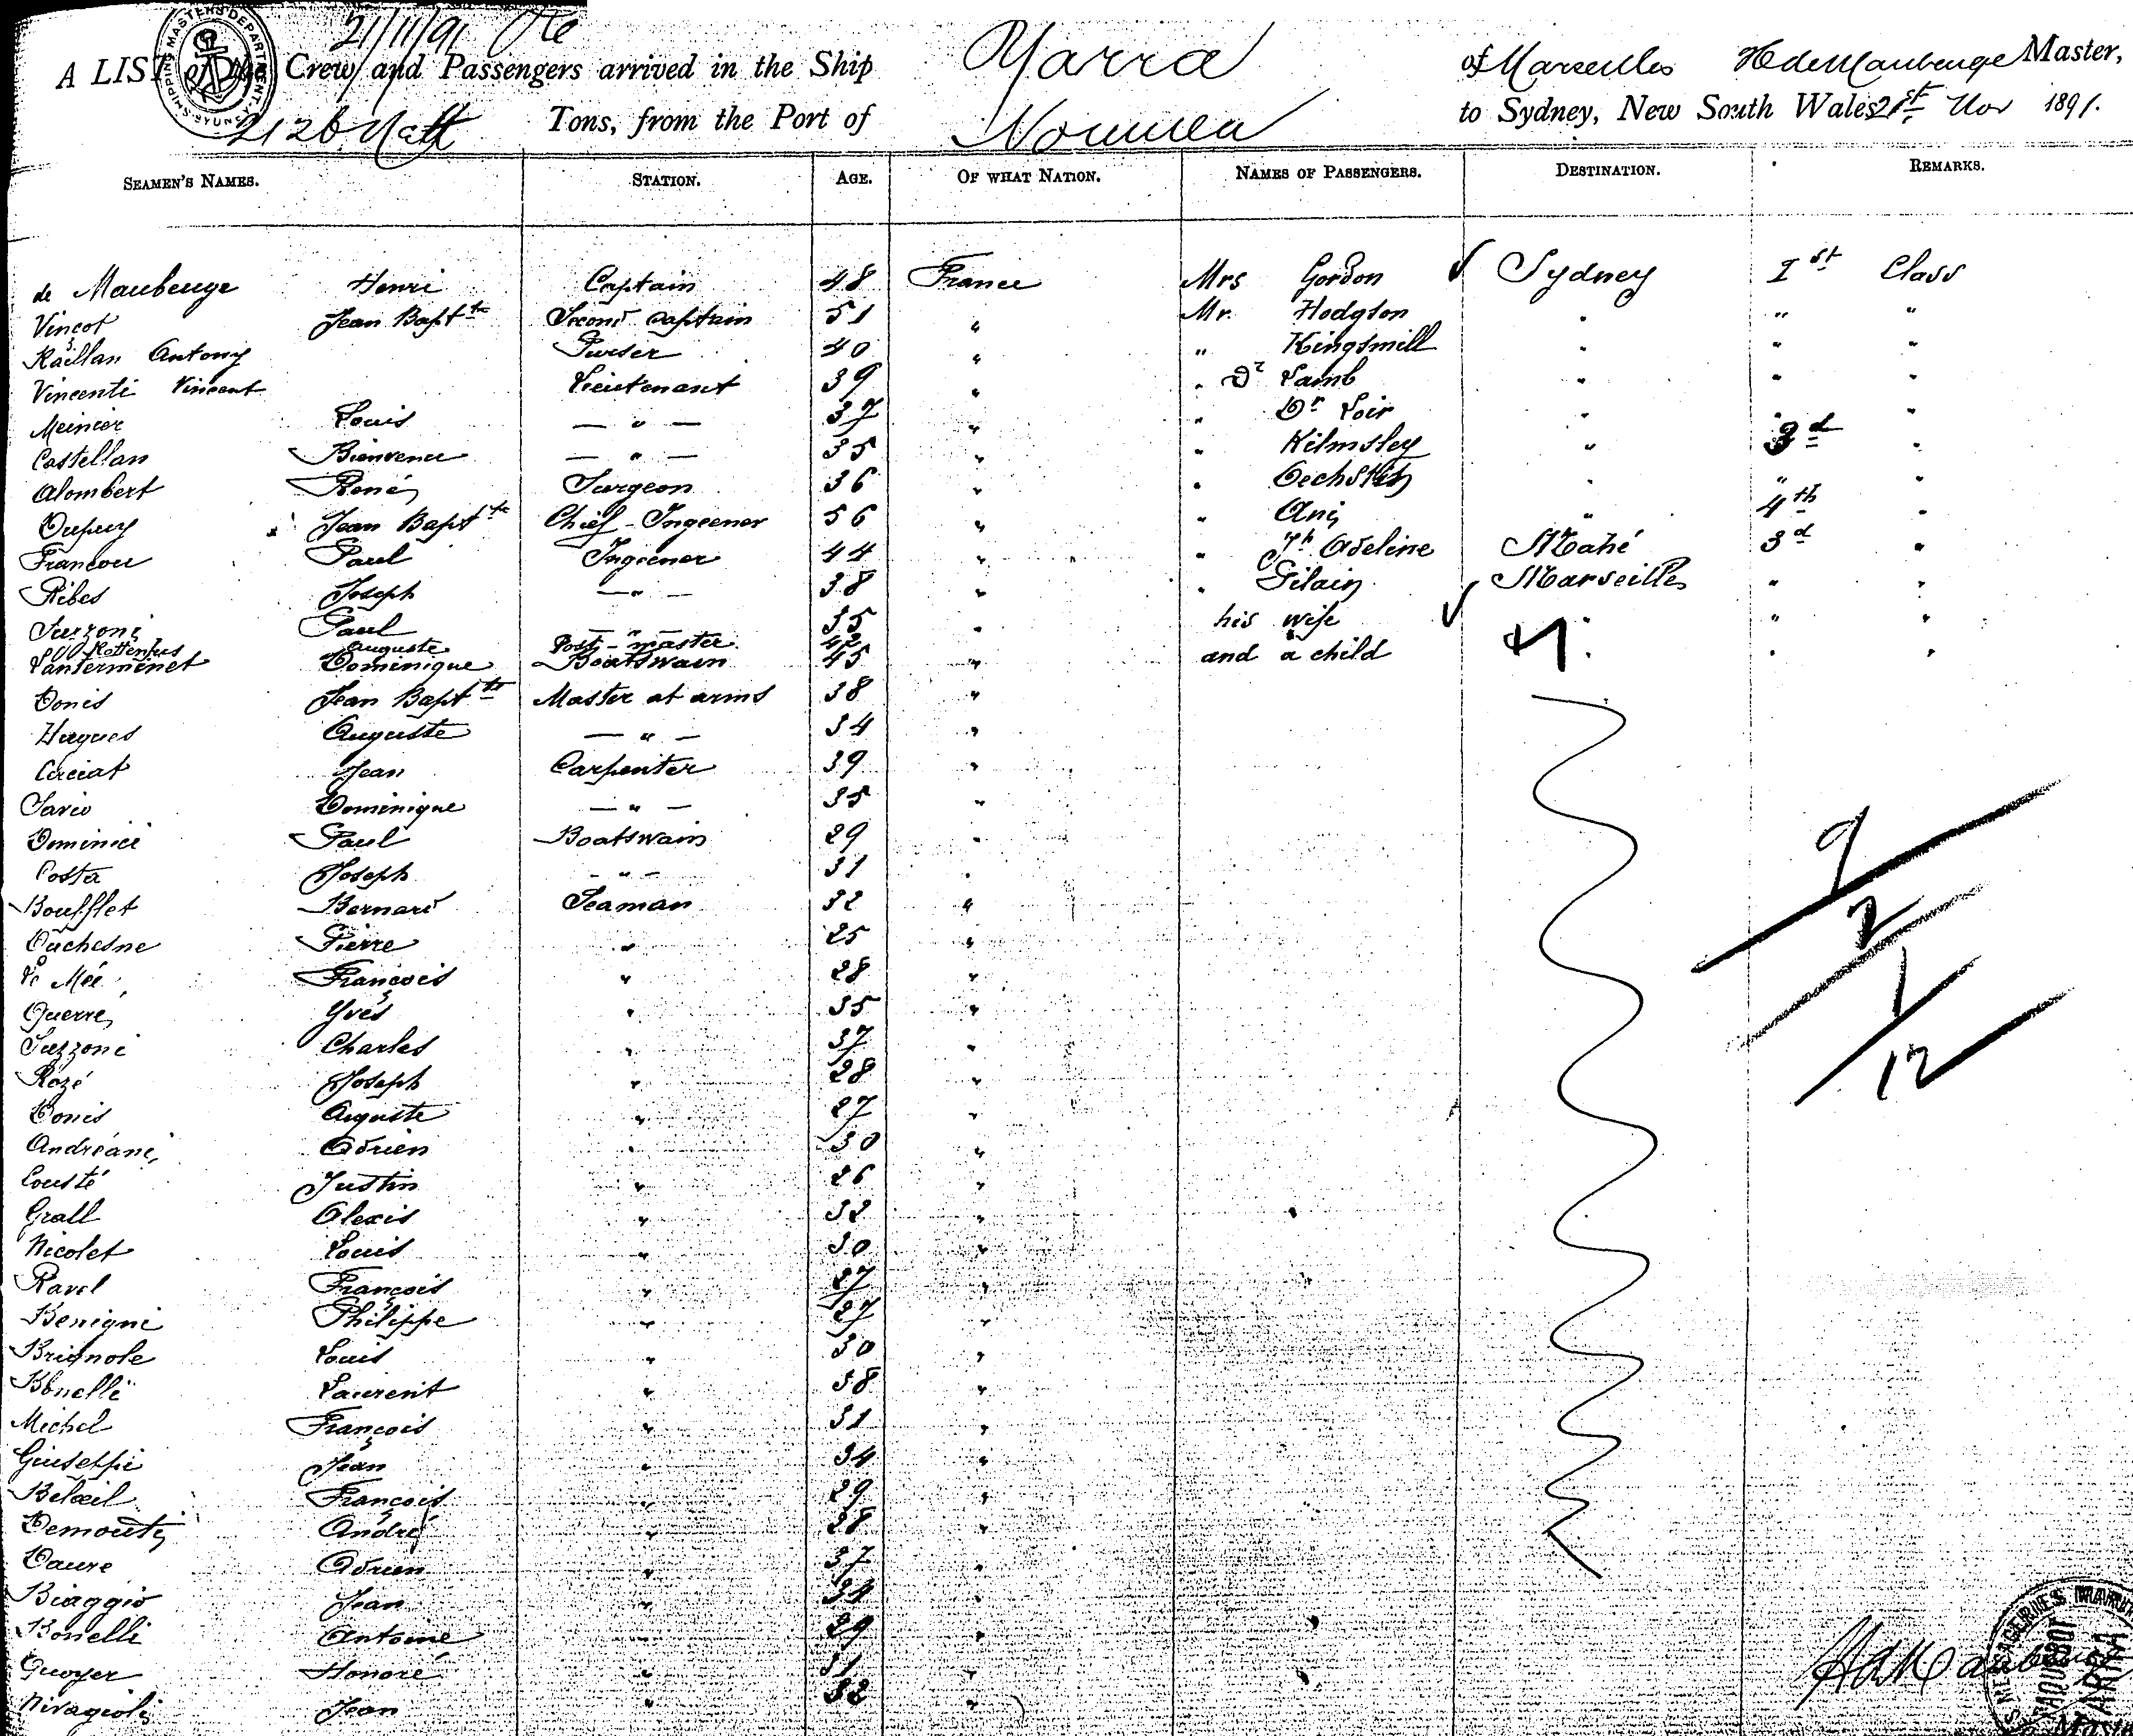 21/11/91
A LIST of the Crew and Passengers arrived in the Ship Yarra of Marseilles H de Maubeuge Master,
2126 Nett Tons, from the Port of Noumea to Sydney, New South Wales 21st Nov 1891.
SHIPPING MASTERS DEPARTMENT SYDNEY
SEAMEN'S NAMES. STATION. AGE. OF WHAT NATION. NAMES OF PASSENGERS. DESTINATION. REMARKS.
de Maubeuge Henri Captain 48 France Mrs Gordon Sydney 1st Class
Vincot Jean Bapt te Second Captain 51 " Mr. Hodgson " " "
Raillan Antony Purser 40 " " Kingsmill " " "
Vincenti Vincent Lieutenant 39 " " Dr Lamb " " "
Meinier Louis — " — 37 " " Dr Loir " " "
Castellan Bienvenu — " — 35 " " Kilmsley " 3d "
Alombert René Surgeon 36 " " " " "
Dupuy Jean Bapt te Chief - Ingeener 56 " " Ani " 4th "
Francou Paul Ingeener 44 " " Th Adeline Mahé 3d "
Ribes Joseph — " — 38 " " Gilain Marseilles " "
Suzzoni Paul — " — 35 " his wife " "
Auguste Post - master 42
Santermenet Dominique Boatswain 45 " and a child " "
Donis Jean Bapt te Master at arms 38 "
Hugues Auguste — " — 34 "
Cucciat Jean Carpenter 39 "
Savio Dominique — " — 35 "
Dominici Paul Boatswain 29 "
Costa Joseph — " — 31 "
Boufflet Bernard Seaman 32 "
Duchesne Pierre " 25 "
Le Mée François " 28 "
Guerre Yves " 35 "
Suzzoni Charles " 37 "
Rozé Joseph " 28 "
Donis Auguste " 27 "
Andréani Adrien " 30 "
Cousté Justin " 26 "
Grall Alexis " 32 "
Nicolet Louis " 30 "
Ravel François " 27 "
Benigni Philippe " 27 "
Brignole Louis " 30 "
Bonelli Laurent " 38 "
Michel François " 31 "
Giuseppi Jean " 34 "
Belœil François " 29 "
Demouty André " 28 "
Daure Adrien " 37 "
Biaggio Jean " 34 "
Bonelli Antoine " 29 "
Guoyer Honoré " 31 "
Nivagioli Jean " 32 "
9
2
1
12
HdeMaubeuge
MESSAGERIES MARITIMES
PAQUEBOT
YARRA
Master